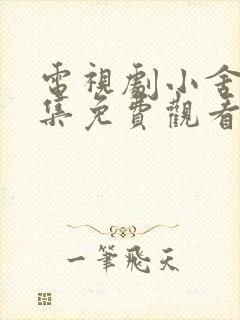 電視劇小舍
集免費觀看
一筆飛天